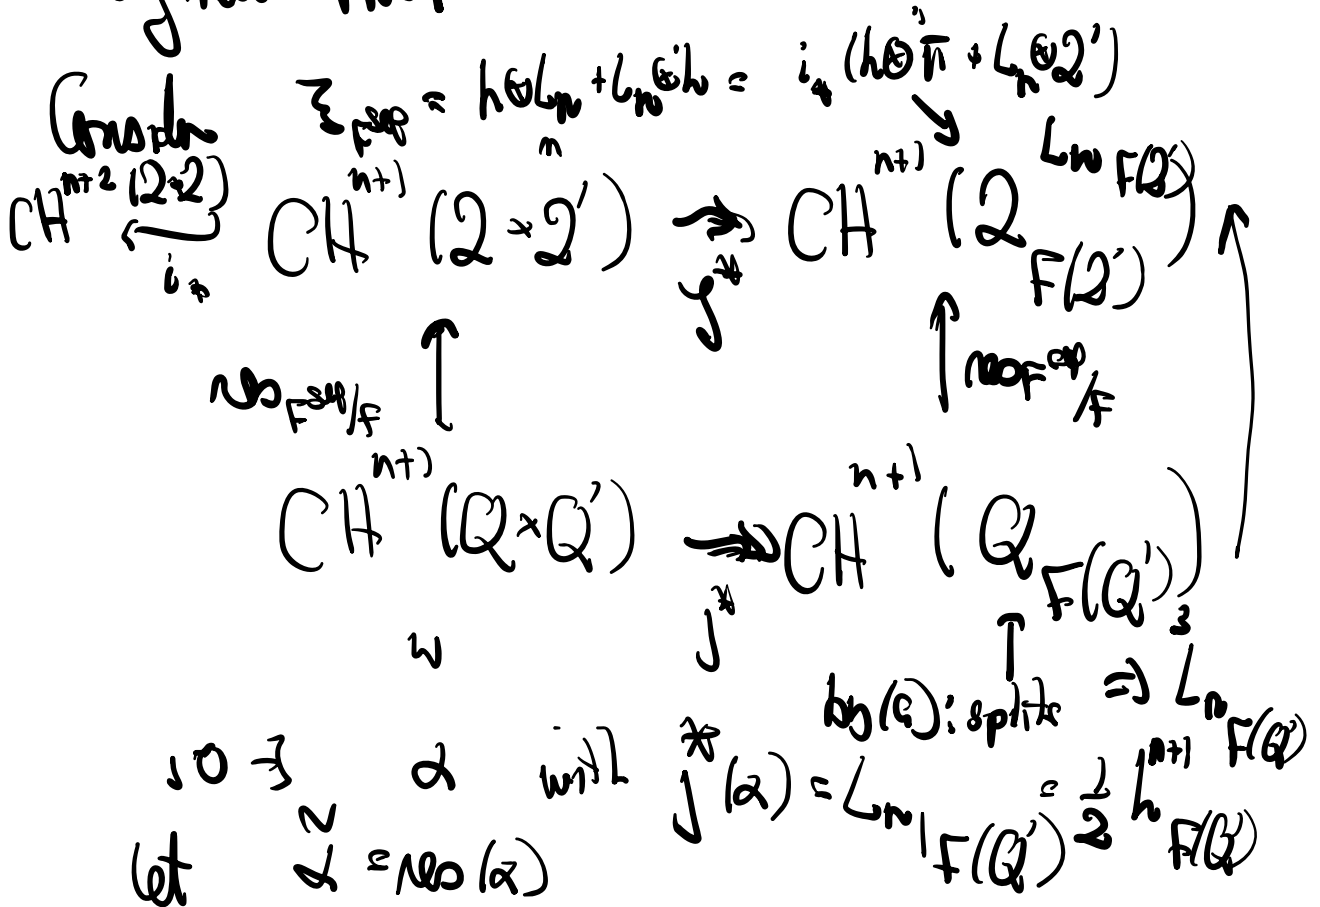 Consider ξ_{F^{sep}} = h⊗L_n + L_n⊗h = i_* (h⊗π + L_n⊗2')
CH^{n+2}(2×2) ←i_* CH^{n+1}(2×2') ↠ j^* CH^{n+1}(2_{F(2')}) L_n F(2')
res_{F^{sep}/F} ↑ ↑ res_{F^{sep}/F}
CH^{n+1}(Q×Q') ↠ j^* CH^{n+1}(Q_{F(Q')}) ∋
by (Q): splits ⇒ L_n F(Q')
so ∃ α with j^*(α) = L_n|F(Q') = 1/2 h^{n+1} F(Q')
let α̃ = res(α)